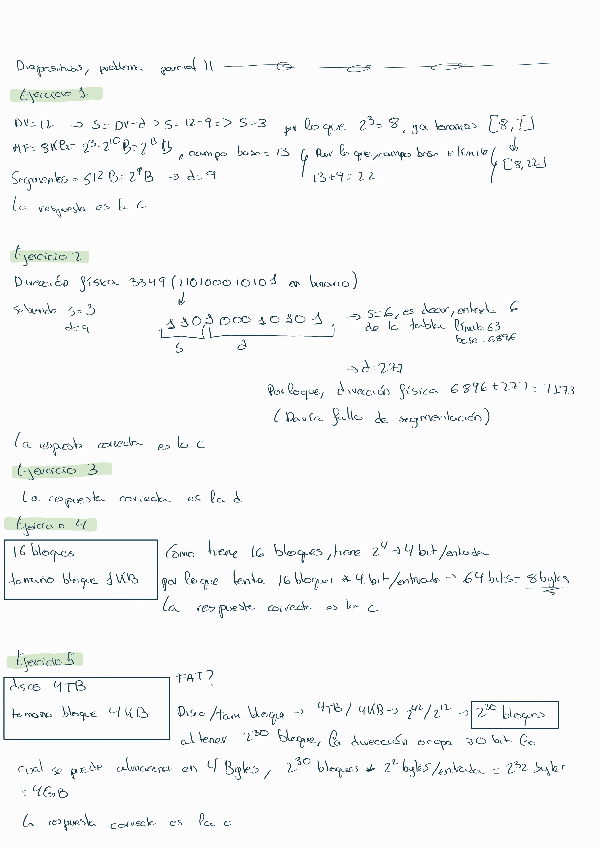 Diapositivas, problemas parcial II
Ejercicio 1
DV=12 → S=DV-d → S=12-9 => S=3 por lo que 2^3=8, ya tenemos [8,?]
MF=8KB= 2^3·2^10 B=2^13 B, campo base=13 Por lo que, campo base + límite [8,22]
Segmentos=512B=2^9B → d=9 13+9=22
La respuesta es la c
Ejercicio 2
Dirección física 3349 (110100010101 en binario)
Sabiendo s=3
d=9
110100010101 → s=6, es decir, entrada 6
de la tabla límite 63
base=6896
s d
→ d=277
Por lo que, dirección física 6896+277=7173
(Daría fallo de segmentación)
La respuesta correcta es la c
Ejercicio 3
La respuesta correcta es la d
Ejercicio 4
16 bloques
tamaño bloque 1KB
Como tiene 16 bloques, tiene 2^4 → 4 bit/entrada
por lo que tenta 16 bloques * 4 bit/entrada → 64 bits = 8 bytes
La respuesta correcta es la c
Ejercicio 5
disco 4TB
tamaño bloque 4KB
FAT?
Disco/tam bloque → 4TB/4KB → 2^42/2^12 → 2^30 bloques
al tener 2^30 bloque, la dirección ocupa 30 bit lo
cual se puede almacenar en 4 Bytes, 2^30 bloques * 2^2 bytes/entrada = 2^32 bytes
=4GB
La respuesta correcta es la